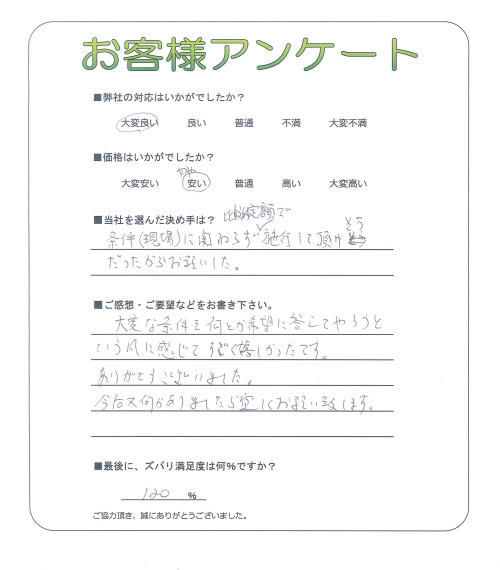 お客様アンケート
■弊社の対応はいかがでしたか？
大変良い 良い 普通 不満 大変不満
■価格はいかがでしたか？
やや
大変安い 安い 普通 高い 大変高い
■当社を選んだ決め手は？ 比較定額で
そう
条件(現場)に関わらず施行して頂け
だったからお願いした。
■ご感想・ご要望などをお書き下さい。
大変な条件を何とか希望に答えてやろうと
いう風に感じてすごく嬉しかったです。
ありがとうございました。
今后又何かありましたら宜しくお願い致します。
■最後に、ズバリ満足度は何%ですか？
120 %
ご協力頂き、誠にありがとうございました。